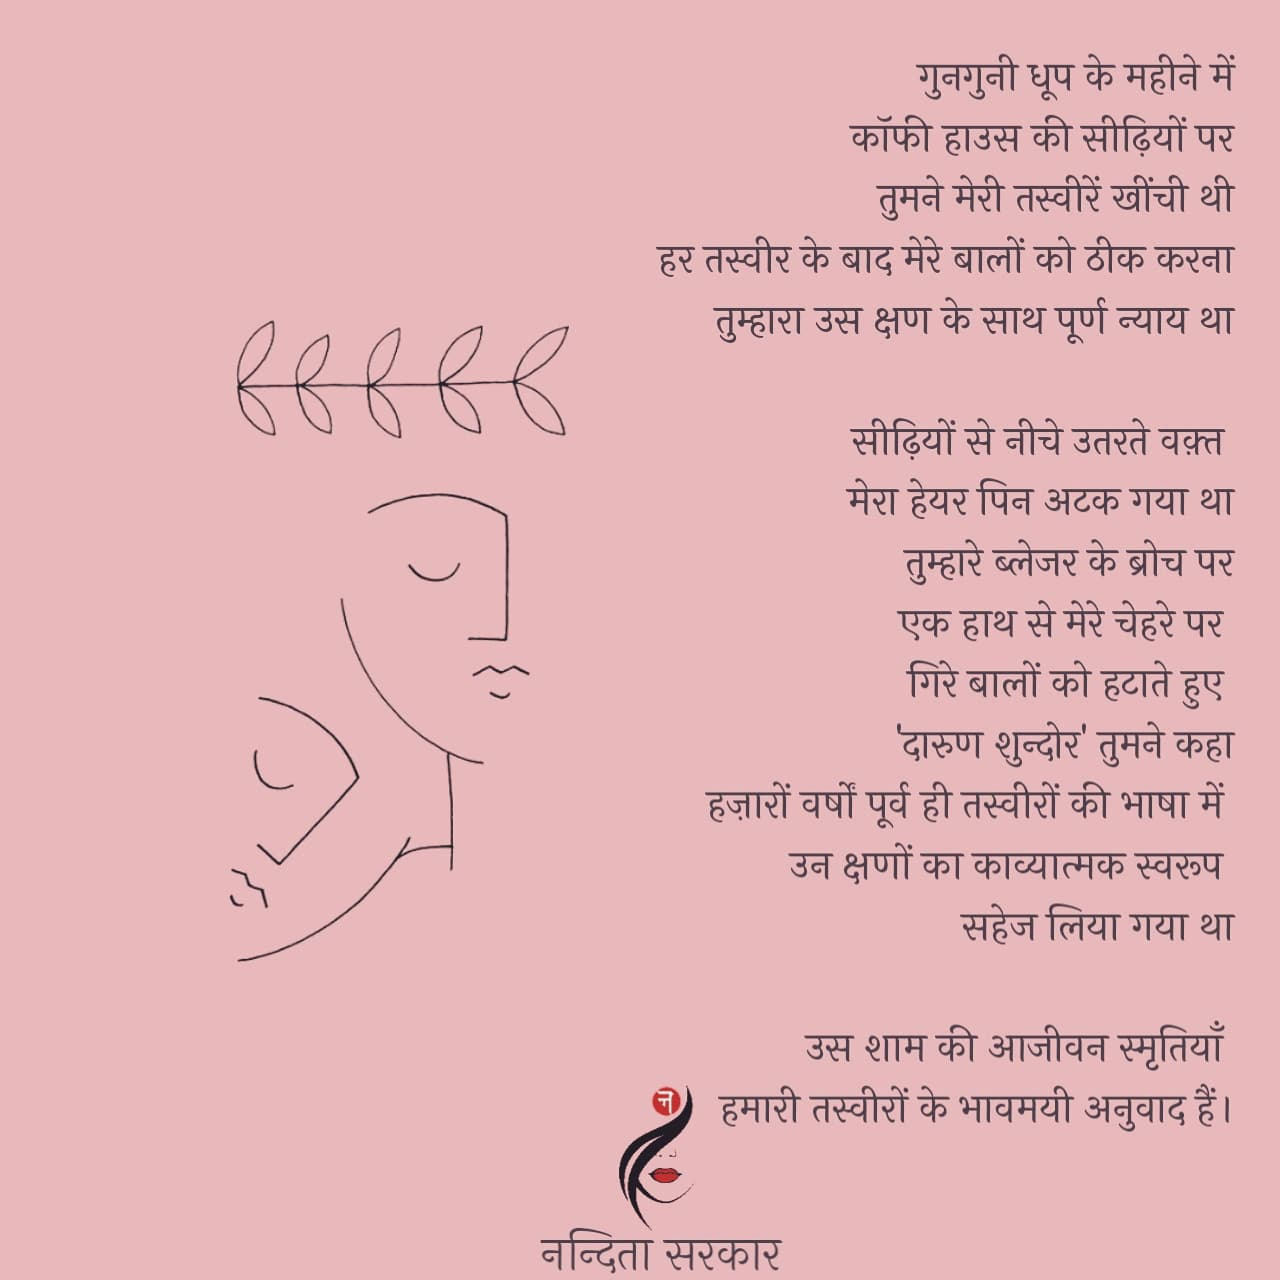 गुनगुनी धूप के महीने में
कॉफी हाउस की सीढ़ियों पर
तुमने मेरी तस्वीरें खींची थी
हर तस्वीर के बाद मेरे बालों को ठीक करना
तुम्हारा उस क्षण के साथ पूर्ण न्याय था
सीढ़ियों से नीचे उतरते वक़्त
मेरा हेयर पिन अटक गया था
तुम्हारे ब्लेजर के ब्रोच पर
एक हाथ से मेरे चेहरे पर
गिरे बालों को हटाते हुए
'दारुण शुन्दोर' तुमने कहा
हज़ारों वर्षों पूर्व ही तस्वीरों की भाषा में
उन क्षणों का काव्यात्मक स्वरूप
सहेज लिया गया था
उस शाम की आजीवन स्मृतियाँ
हमारी तस्वीरों के भावमयी अनुवाद हैं।
नन्दिता सरकार